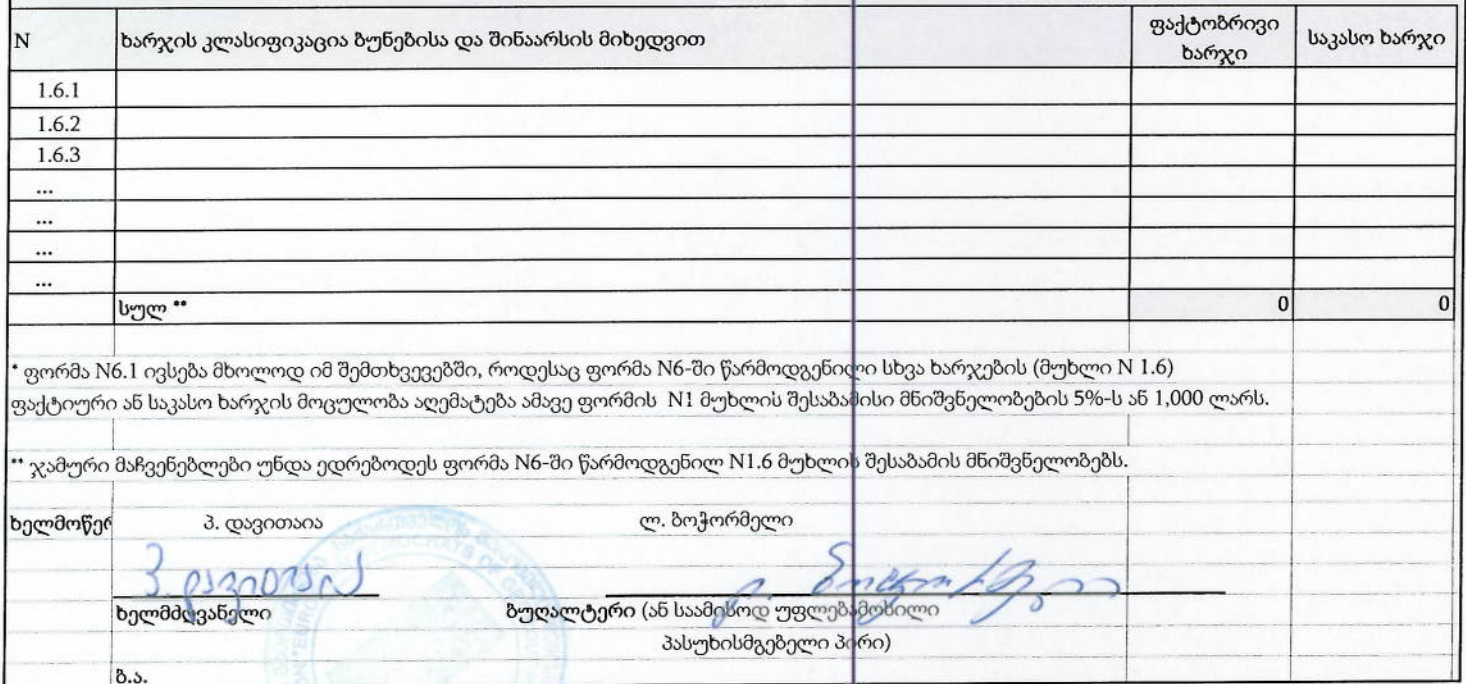 N ხარჯის კლასიფიკაცია ბუნებისა და შინაარსის მიხედვით ფაქტობრივი ხარჯი საკასო ხარჯი
1.6.1
1.6.2
1.6.3
...
...
...
...
სულ ** 0 0
* ფორმა N6.1 ივსება მხოლოდ იმ შემთხვევებში, როდესაც ფორმა N6-ში წარმოდგენილი სხვა ხარჯების (მუხლი N 1.6)
ფაქტიური ან საკასო ხარჯის მოცულობა აღემატება ამავე ფორმის N1 მუხლის შესაბამისი მნიშვნელობების 5%-ს ან 1,000 ლარს.
** ჯამური მაჩვენებლები უნდა ედრებოდეს ფორმა N6-ში წარმოდგენილ N1.6 მუხლის შესაბამის მნიშვნელობებს.
ხელმოწერ პ. დავითაია ლ. ბოჭორმელი
პ. დავითაია
ხელმძღვანელი ბუღალტერი (ან საამისოდ უფლებამოსილი
პასუხისმგებელი პირი)
ბ.ა.